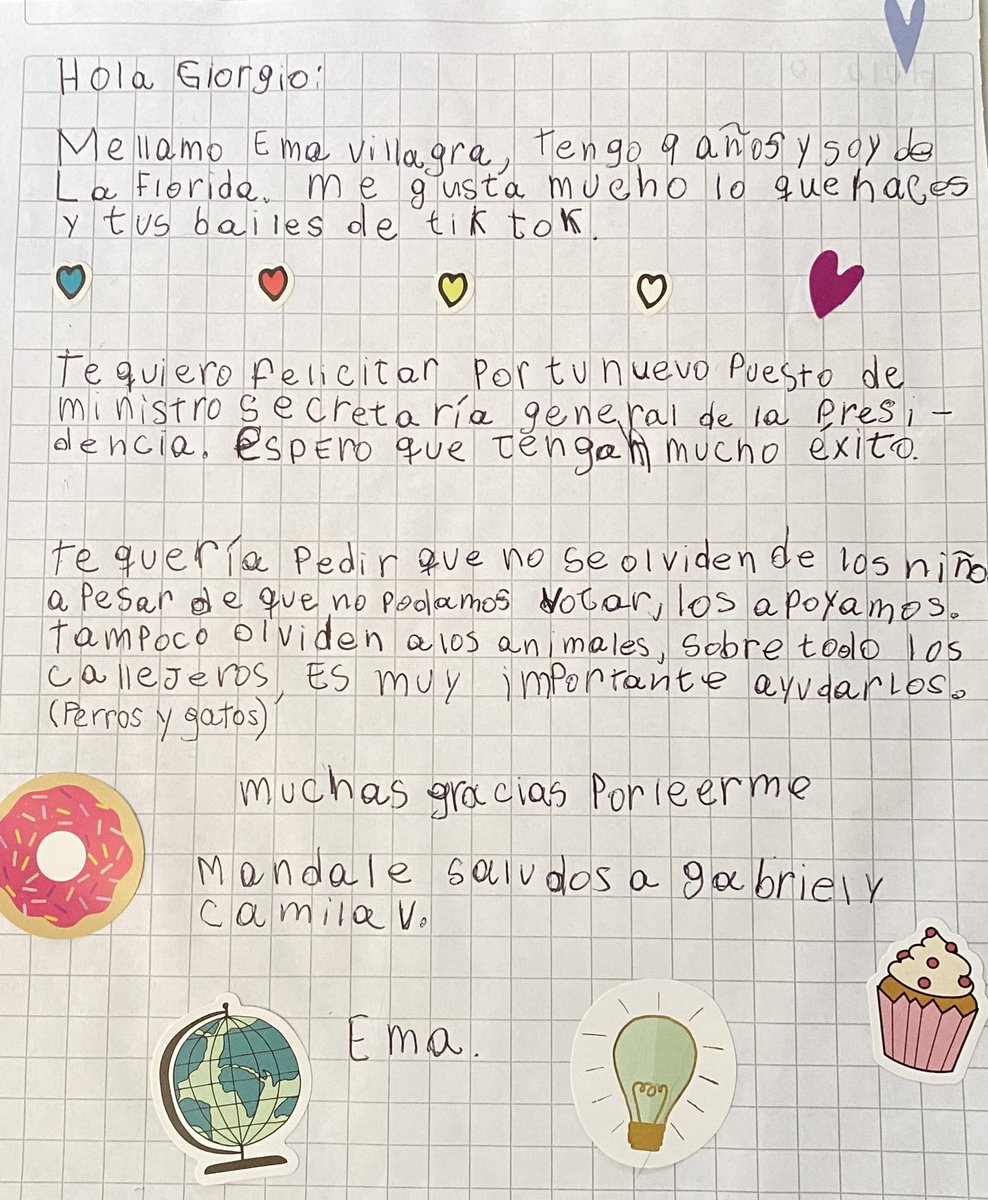 Hola Giorgio:
Mellamo Ema Villagra, Tengo 9 años y soy de
La Florida. me gusta mucho lo que haces
y tus bailes de tik tok.
Te quiero felicitar por tu nuevo puesto de
ministro secretaría general de la presi-
dencia. espero que tengan mucho éxito.
te quería pedir que no se olviden de los niño
a pesar de que no podamos votar, los apoyamos.
tampoco olviden a los animales, sobre todo los
callejeros, Es muy importante ayudarlos.
(Perros y gatos)
muchas gracias por leerme
Mandale saludos a gabriel y
camila V.
Ema.